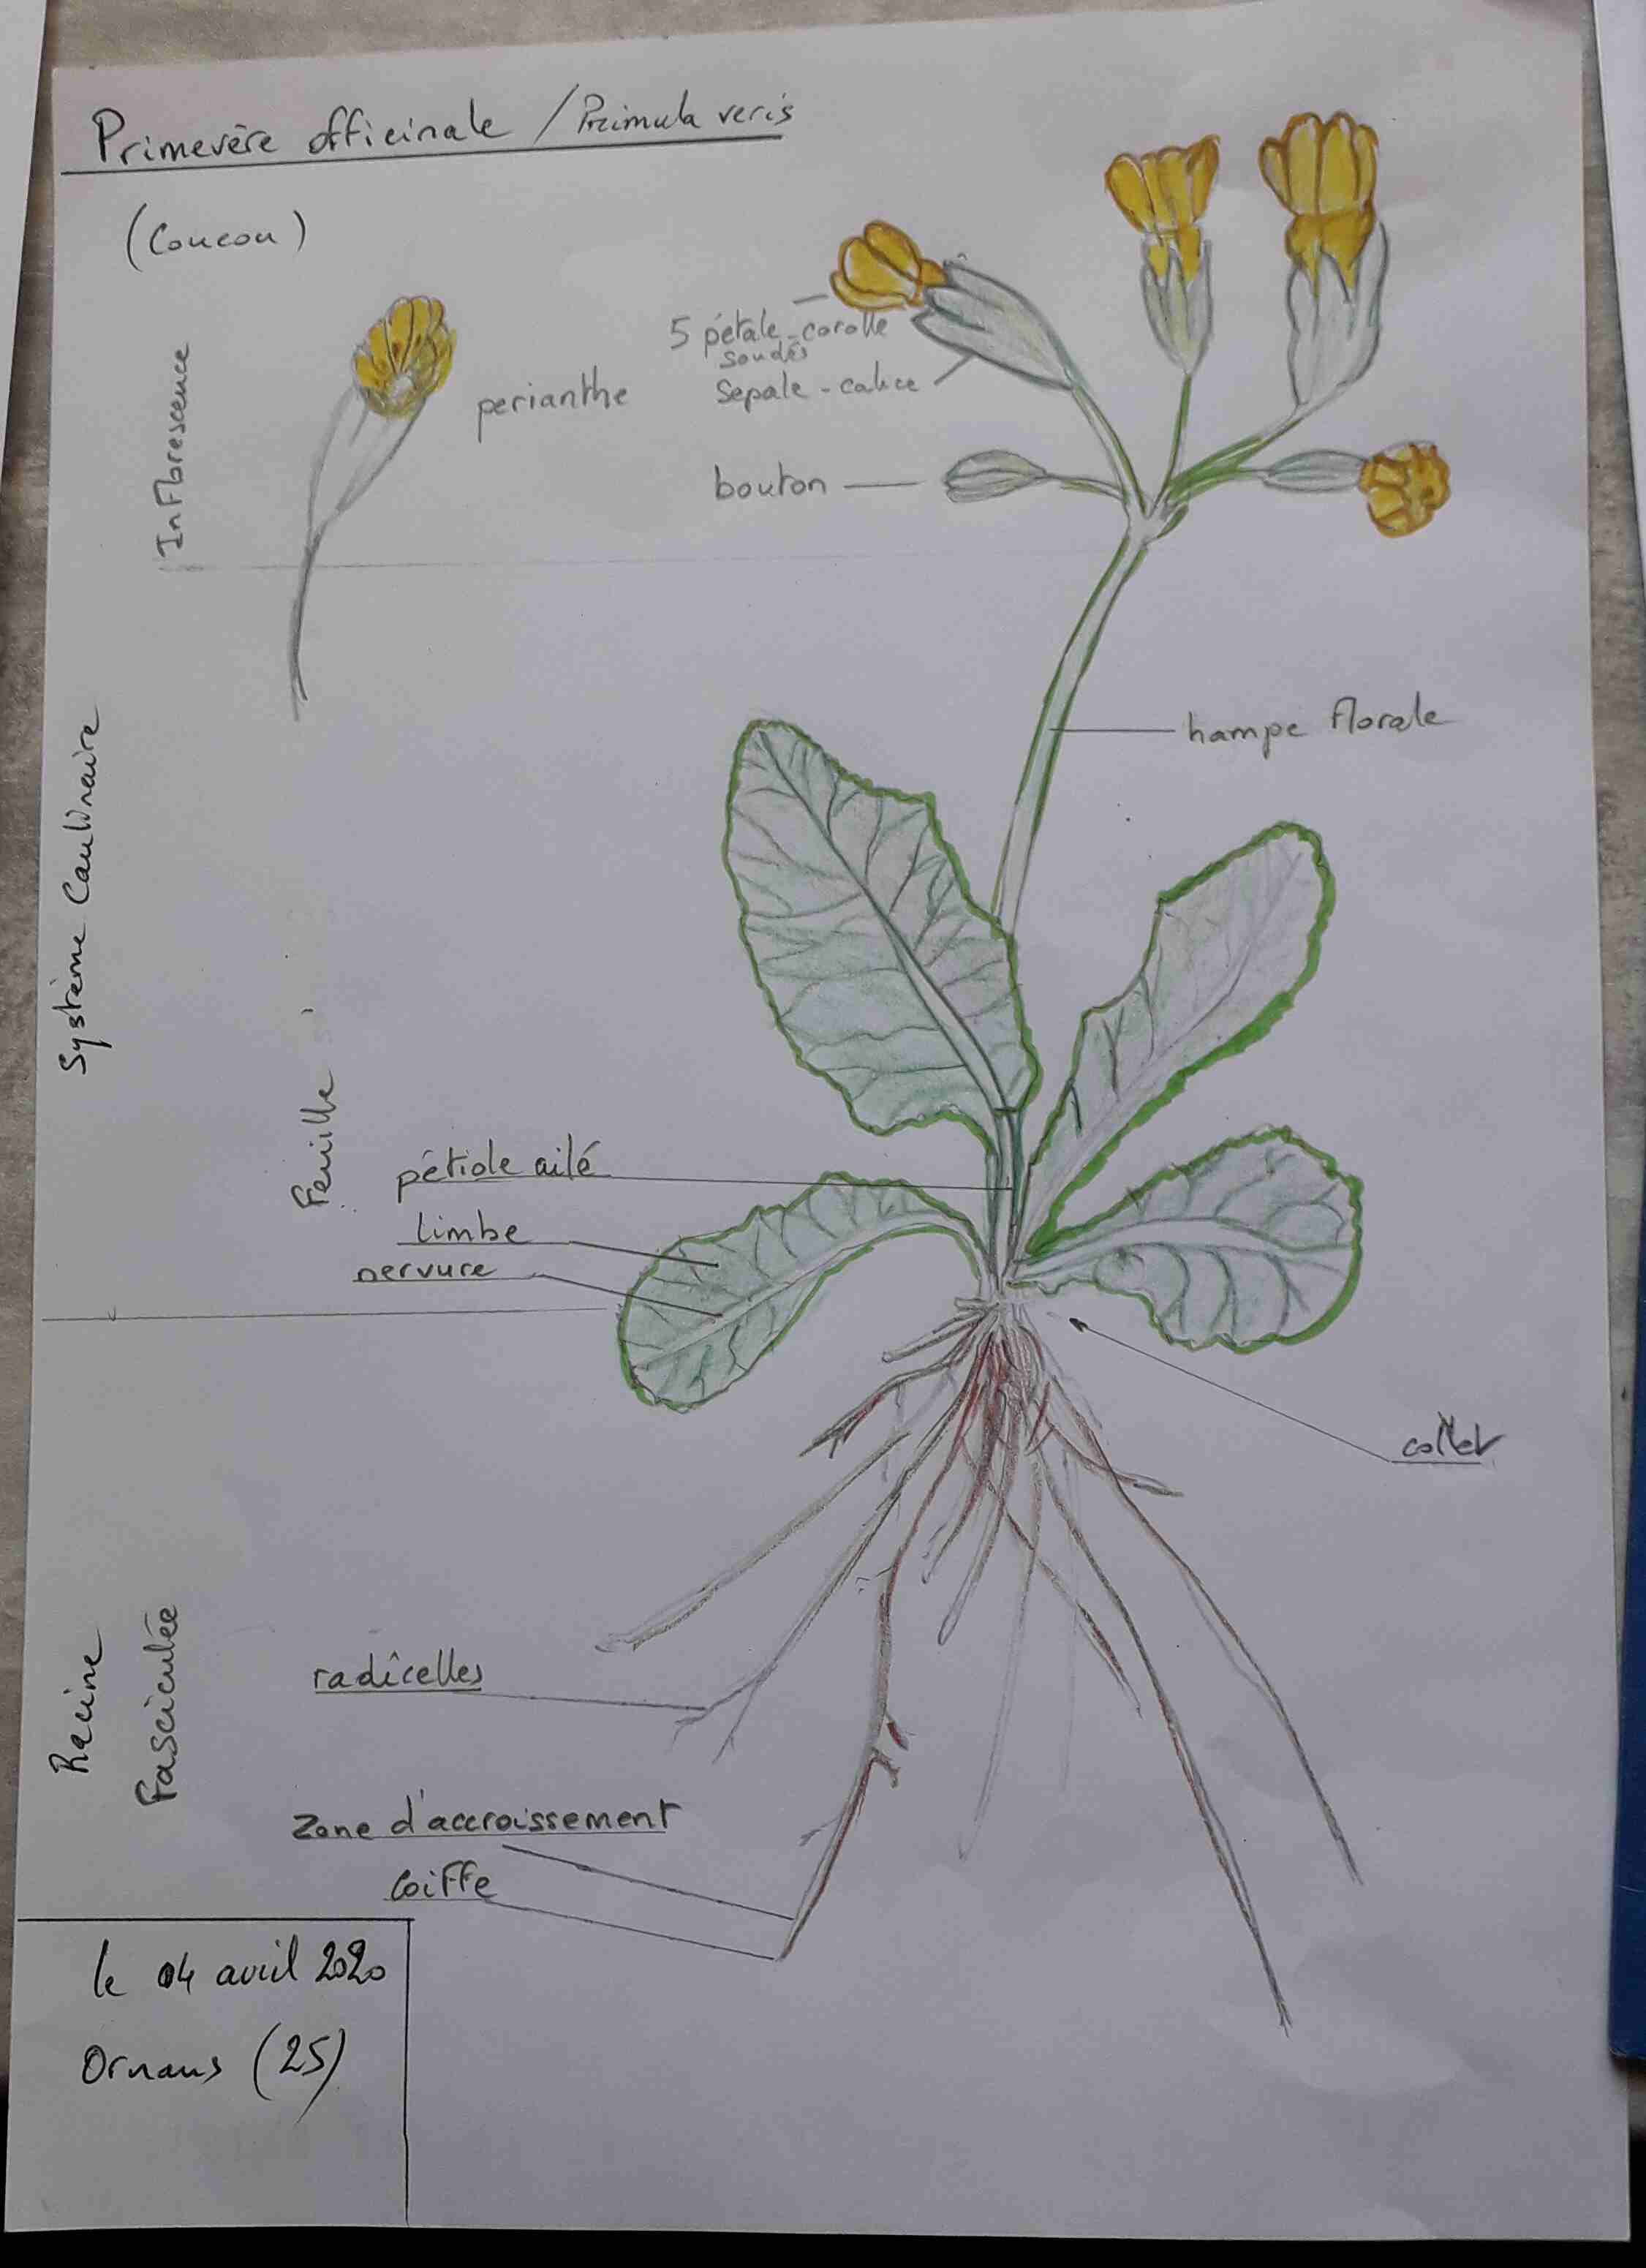 Primevère officinale / Primula veris
(Coucou)
Inflorescence
perianthe
5 pétale - corolle
soudés
Sepale - calice
bouton
hampe florale
Système Caulinaire
Feuille
pétiole ailé
limbe
nervure
collet
Racine
Fasciculée
radicelles
Zone d'accroissement
Coiffe
le 04 avril 2020
Ornans (25)